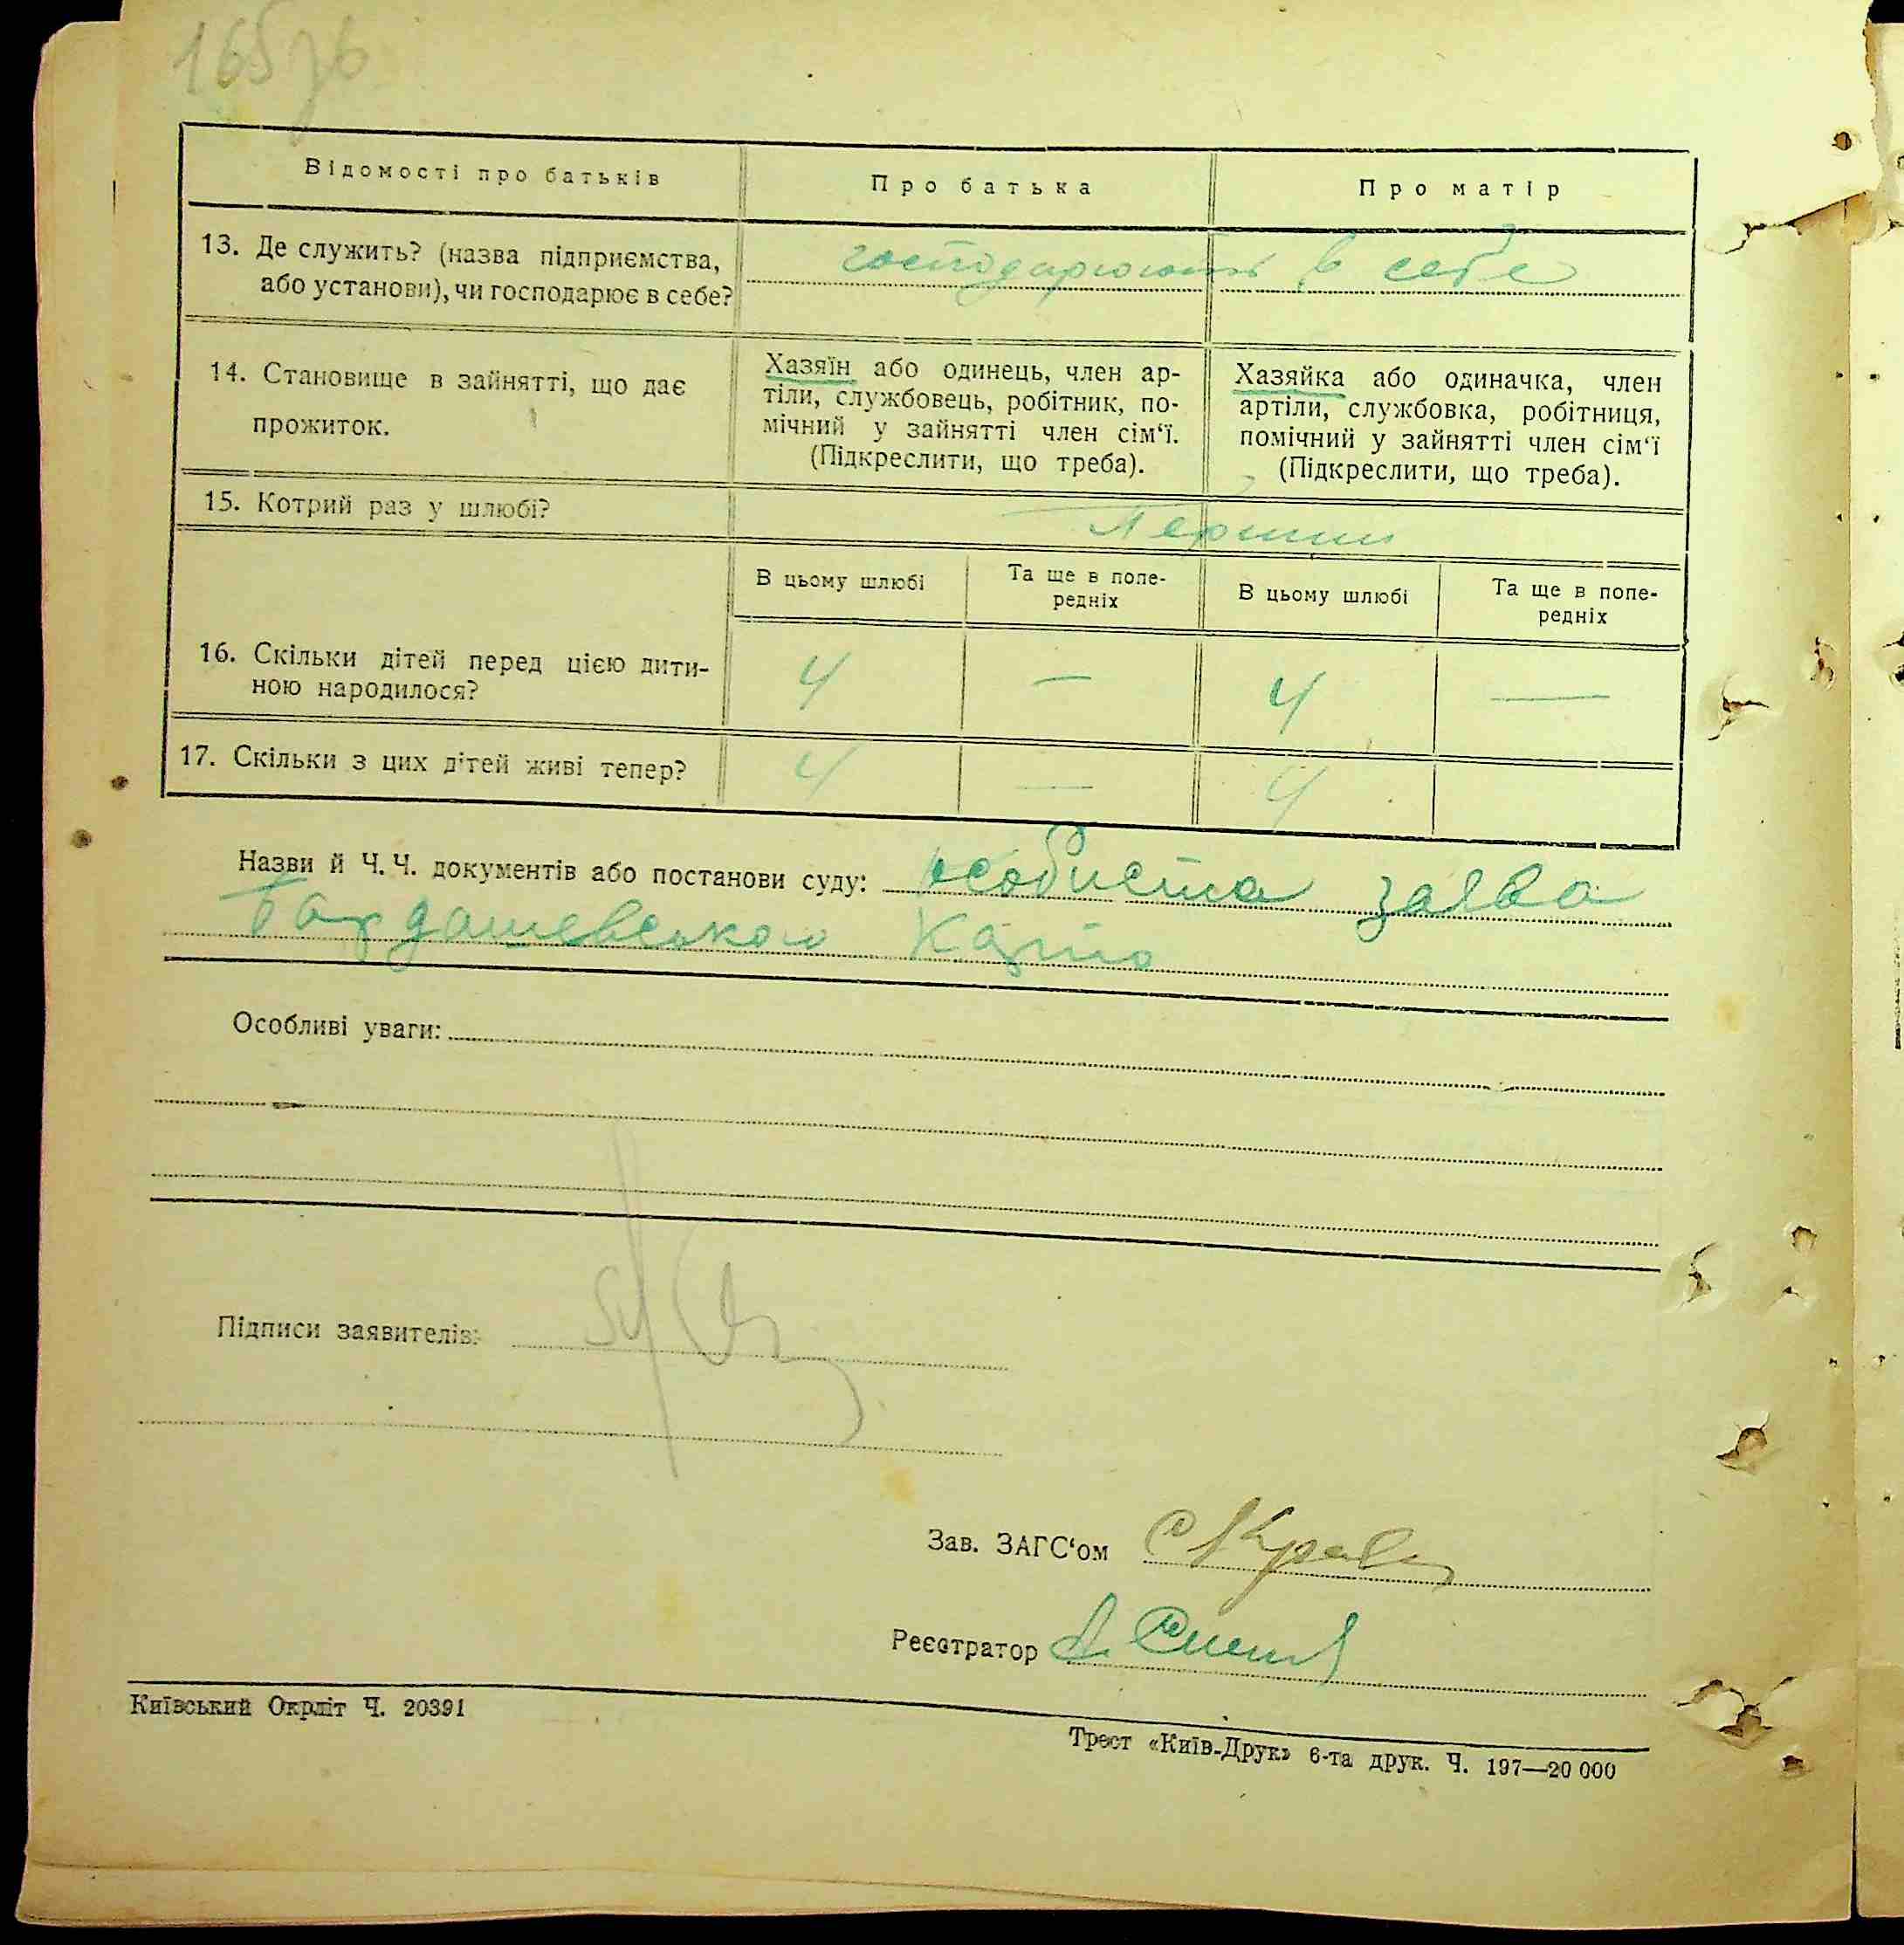 165зв
Відомості про батьків
Про батька
Про матір
13. Де служить? (назва підприємства,
або установи), чи господарює в себе?
господарюють в себе
14. Становище в зайнятті, що дає
прожиток.
Хазяїн або одинець, член ар-
тіли, службовець, робітник, по-
мічний у зайнятті член сім‘ї.
(Підкреслити, що треба).
Хазяйка або одиначка, член
артіли, службовка, робітниця,
помічний у зайнятті член сім‘ї
(Підкреслити, що треба).
15. Котрий раз у шлюбі?
Перший
В цьому шлюбі
Та ще в попе-
редніх
В цьому шлюбі
Та ще в попе-
редніх
16. Скільки дітей перед цією дити-
ною народилося?
4 — 4 —
17. Скільки з цих дітей живі тепер?
4 — 4
Назви й Ч. Ч. документів або постанови суду: особиста заява
Бардашевського
Особливі уваги:
Підписи заявителів:
Зав. ЗАГС‘ом
Реєстратор
Київський Окрліт Ч. 20391
Трест «Київ-Друк» 6-та друк. Ч. 197—20 000